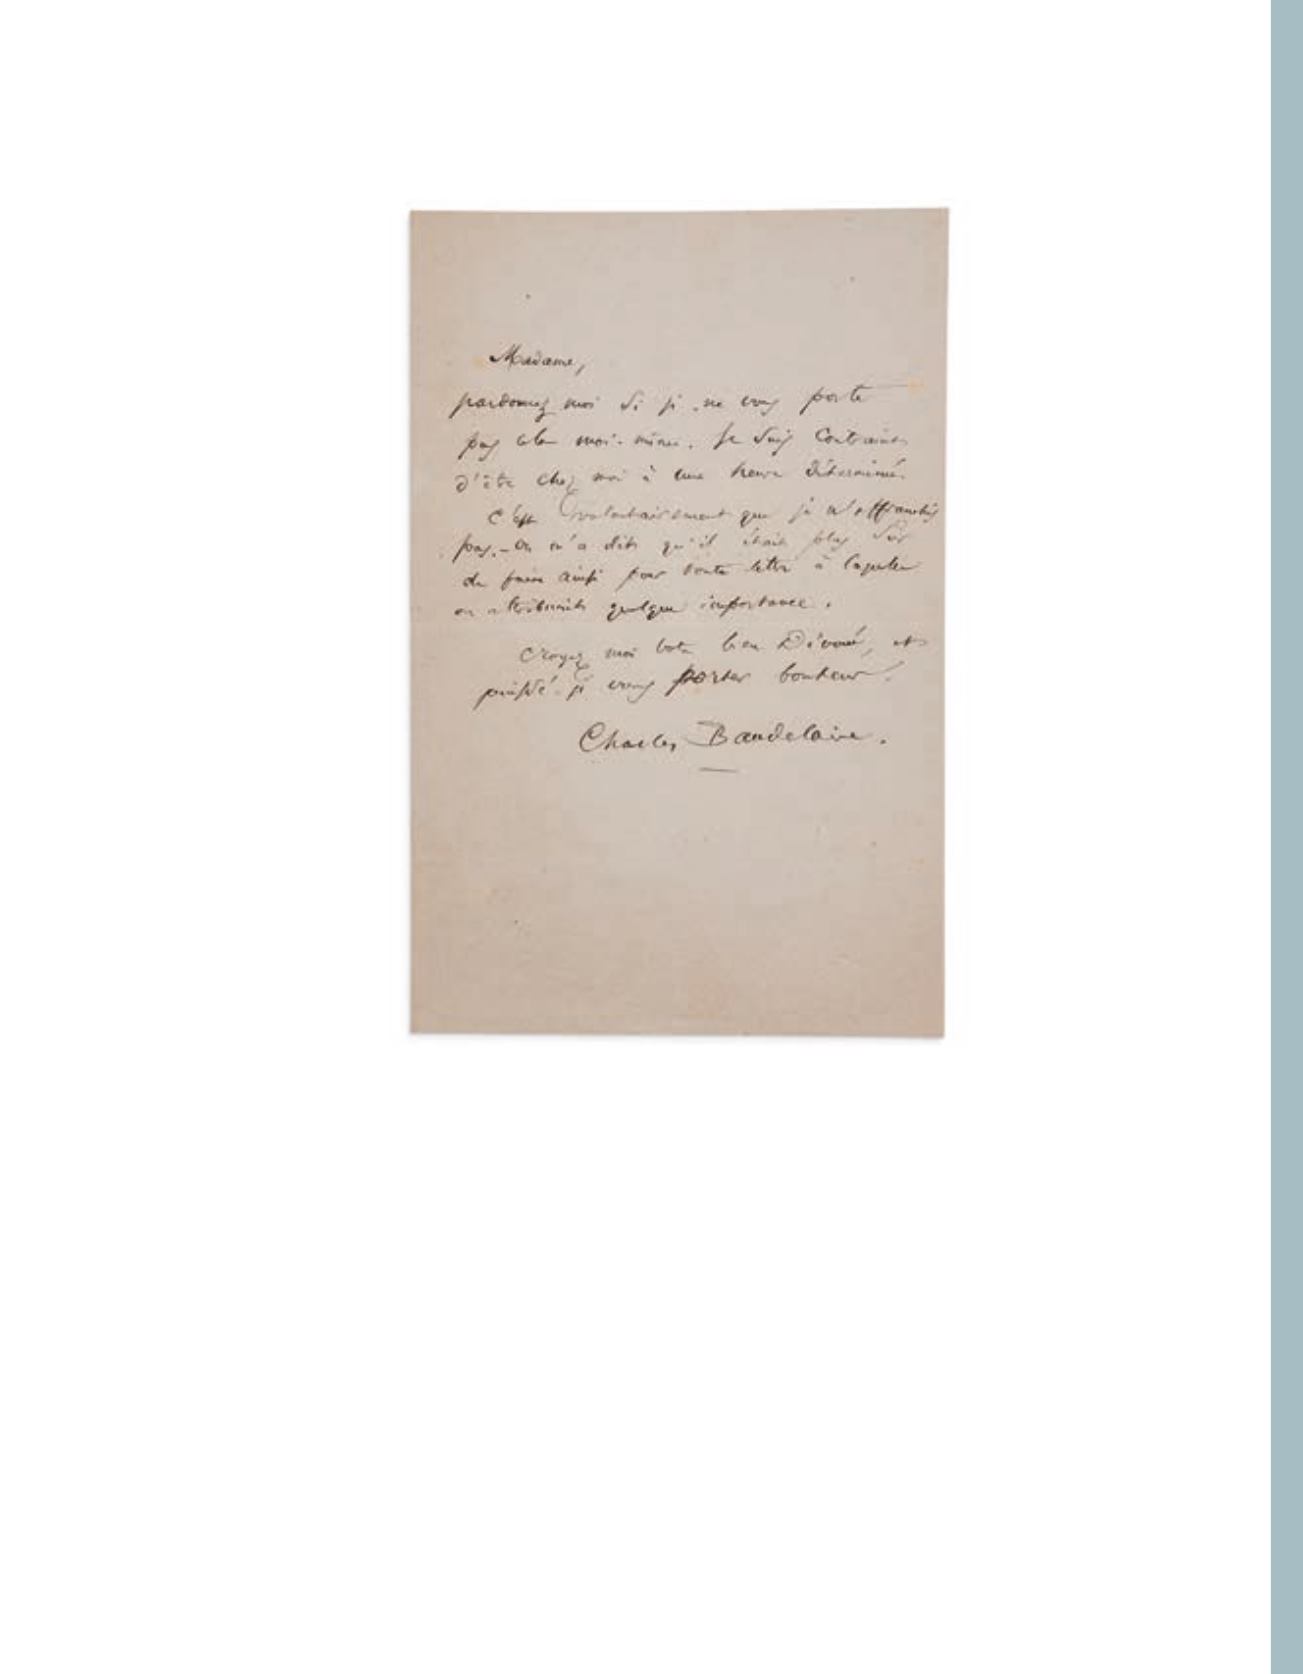 Madame,
pardonnez moi si je ne vous porte
pas cela moi-même. Je suis contraint
d'être chez moi à une heure déterminée.
C'est volontairement que je n'affranchis
pas. – On m'a dit qu'il était plus sûr
de faire ainsi pour toute lettre à laquelle
on attribuait quelque importance.
Croyez moi votre bien Dévoué, et
puissé-je vous porter bonheur!
Charles Baudelaire.